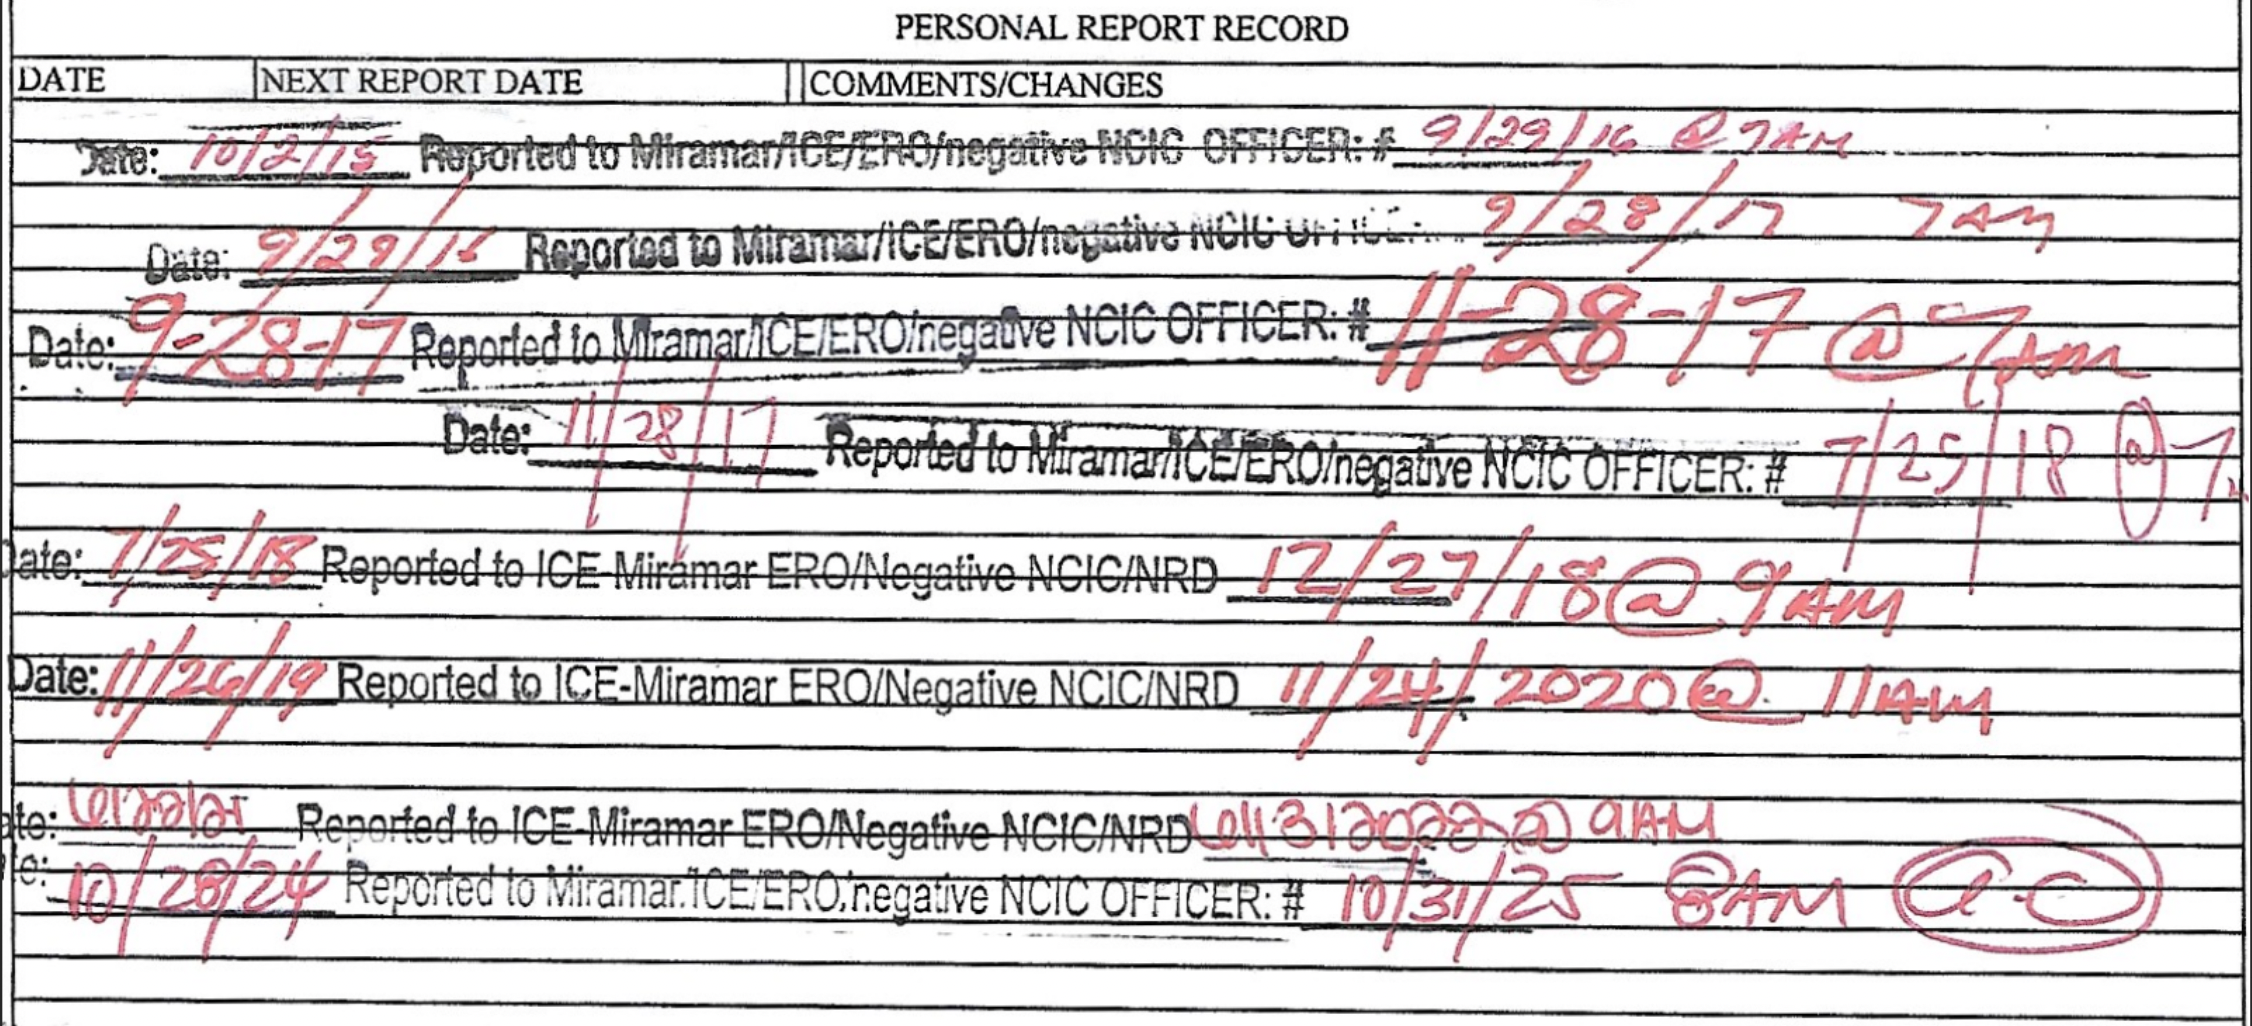 PERSONAL REPORT RECORD
DATE NEXT REPORT DATE COMMENTS/CHANGES
Date: 10/2/15 Reported to Miramar/ICE/ERO/negative NCIC OFFICER: # 9/29/16 @ 7AM
Date: 9/29/16 Reported to Miramar/ICE/ERO/negative NCIC 9/28/17 7AM
Date: 9-28-17 Reported to Miramar/ICE/ERO/negative NCIC OFFICER: # 11-28-17 @ 7AM
Date: 11/28/17 Reported to Miramar/ICE/ERO/negative NCIC OFFICER: # 7/25/18 @ 7
Date: 7/25/18 Reported to ICE-Miramar ERO/Negative NCIC/NRD 12/27/18 @ 9AM
Date: 11/26/19 Reported to ICE-Miramar ERO/Negative NCIC/NRD 11/24/2020 @ 11AM
ate: Reported to ICE-Miramar ERO/Negative NCIC/NRD @ 9AM
te: 10/28/24 Reported to Miramar/ICE/ERO/negative NCIC OFFICER: # 10/31/25 8AM